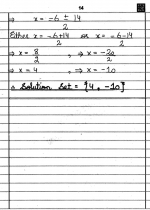 14
⇒ x = -6 ± 14 / 2
Either x = -6+14 / 2 or x = -6-14 / 2
⇒ x = 8/2 , ⇒ x = -20/2
⇒ x = 4 , ⇒ x = -10
∴ Solution Set = {4, -10}